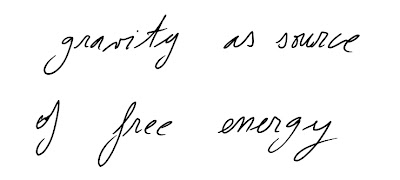 gravity as source
of free energy